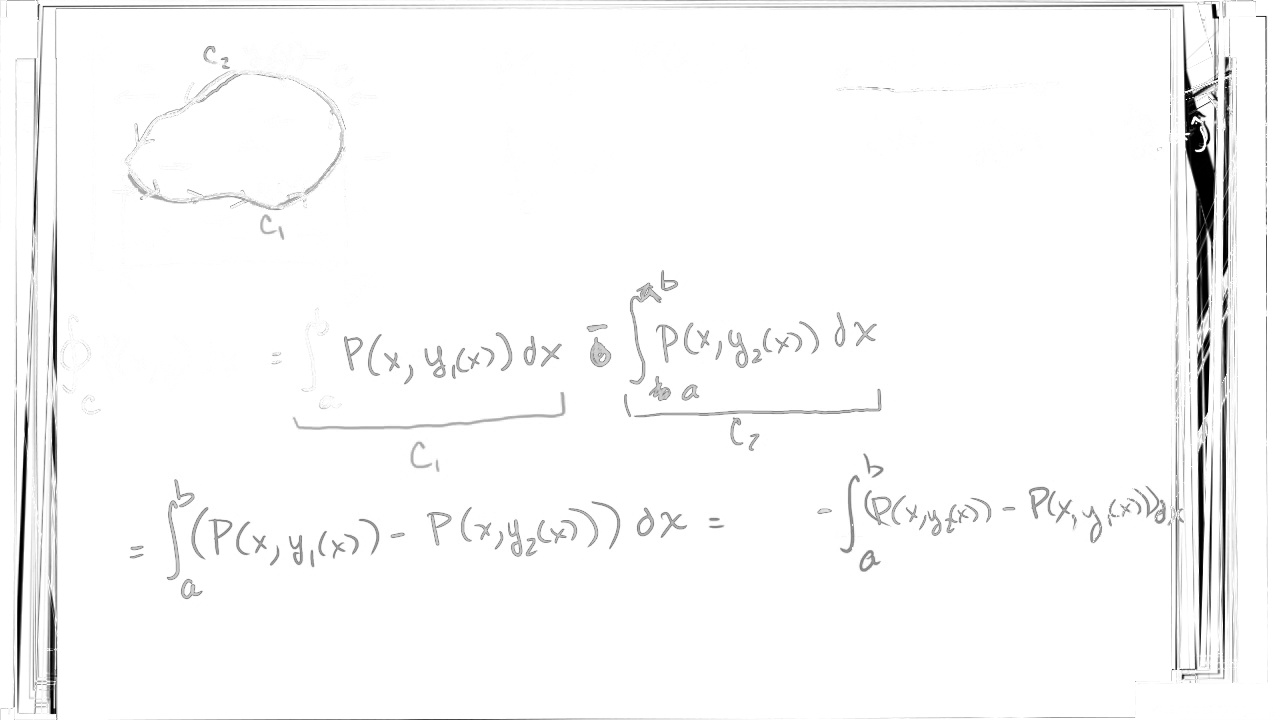 C₂
C₁
∮_C = ∫_a^b P(x, y₁(x)) dx - ∫_a^b P(x, y₂(x)) dx
C₁ C₂
= ∫_a^b (P(x, y₁(x)) - P(x, y₂(x))) dx = - ∫_a^b (P(x, y₂(x)) - P(x, y₁(x))) dx